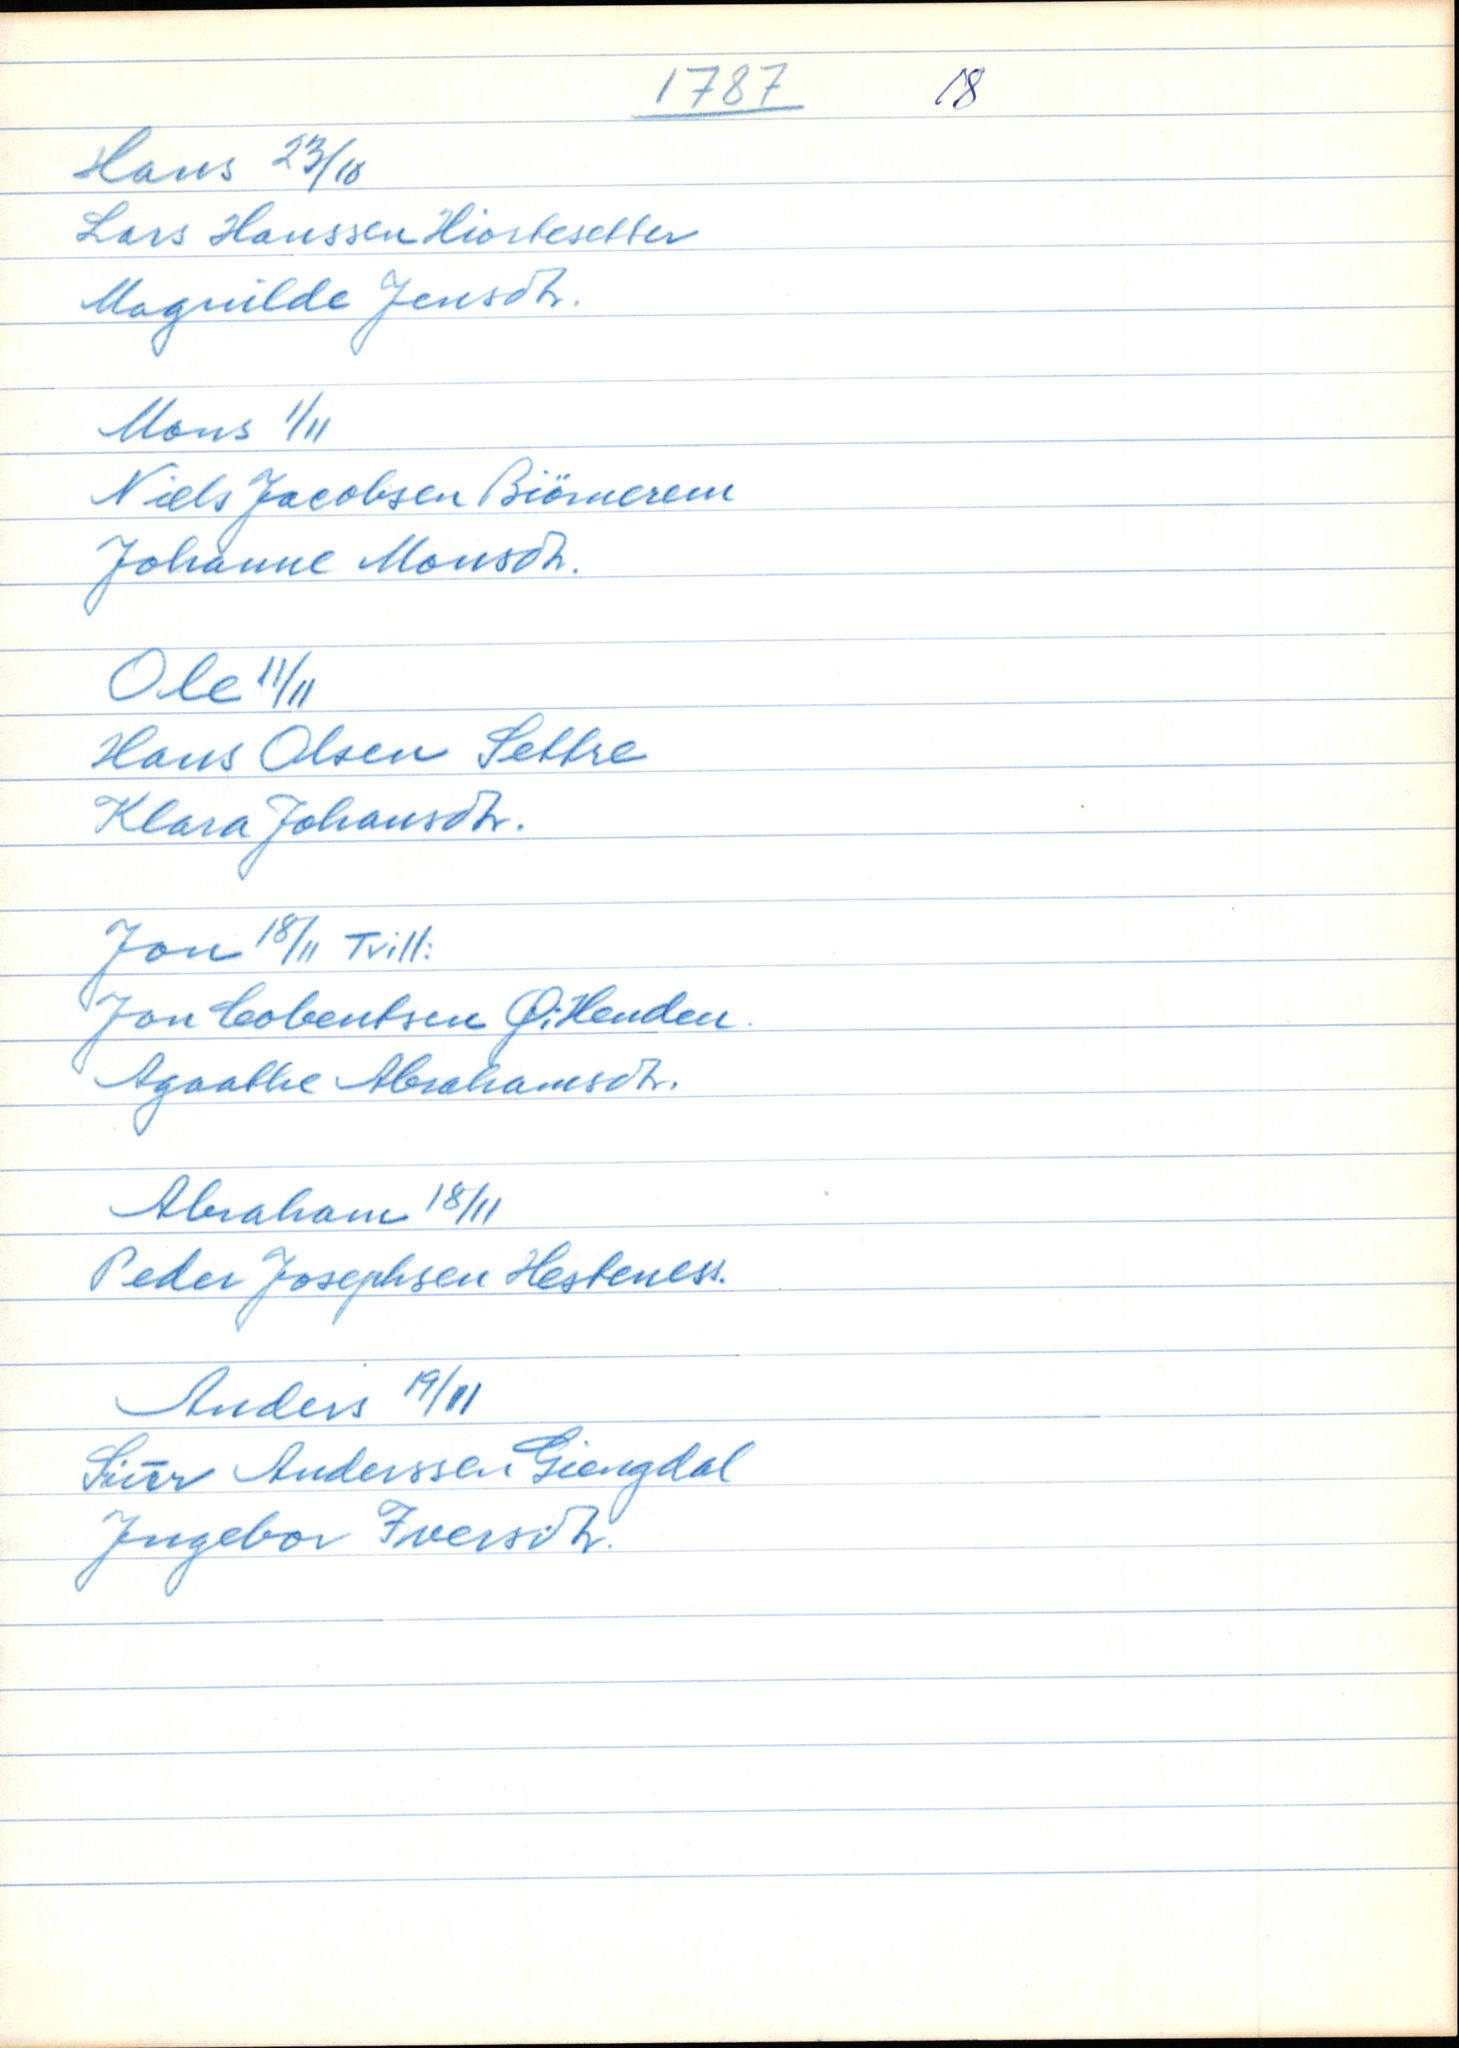 1787 18
Hans 23/10
Lars Hanssen Hiortesetter
Magnilde Jensdtr.
Mons 1/11
Niels Jacobsen Biörnerem
Johanne Monsdtr.
Ole 11/11
Hans Olsen Settre
Klara Johansdtr.
Jon 18/11 Tvill:
Jon Cobentsen Ø: Henden.
Agaathe Abrahamsdtr.
Abraham 18/11
Peder Josephsen Hesteness.
Anders 19/11
Siur Anderssen Giengdal
Ingebor Iversdtr.